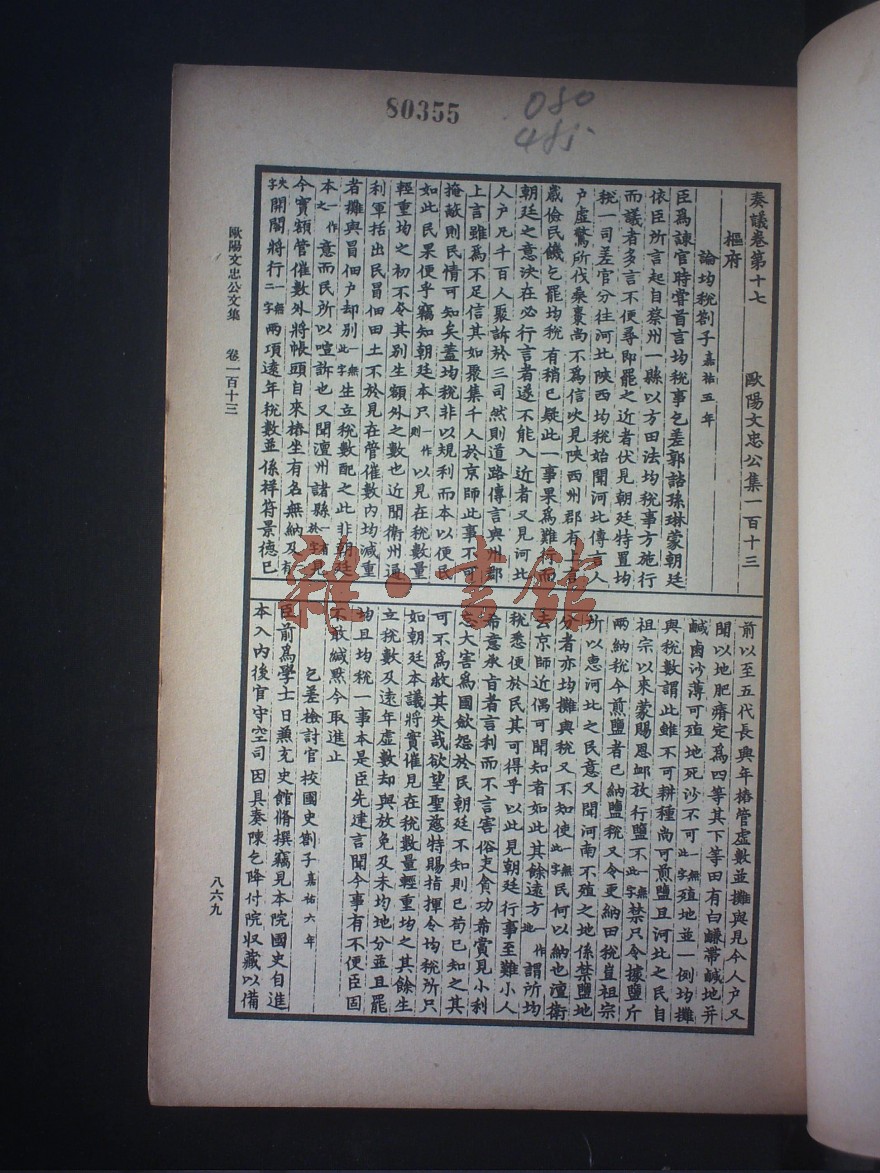 80355
080
485
奏議卷第十七 歐陽文忠公集一百十三
樞府
論均稅劄子嘉祐五年
臣爲諫官時嘗首言均稅事乞差郭諮孫琳蒙朝廷
依臣所言起自蔡州一縣以方田法均稅事方施行
而議者多言不便尋即罷之近者伏見朝廷特置均
稅一司差官分往河北陝西均稅始聞河北傳言人
户虛驚斫伐桑棗尚不爲信次見陝西州郡有
歲儉民饑乞罷均稅有稍已疑此一事果爲難行而
朝廷之意決在必行言者遂不能入近者又見河北
人户凡千百人聚訴於三司然則道路傳言與州郡
上言雖爲不足信其如聚集千人於京師此事不可
掩蔽則民情可知矣蓋均稅非以規利而本以便民
如此民果便乎竊知朝廷本只一作則以見在稅數量
輕重均之初不令其別生額外之數也近聞衛州通
利軍括出民冒佃田土不於見在管催數內均減重
者攤與冒佃户却別無此字生立稅數配之此非朝廷
本一作之意而民所以喧訴也又聞澶州諸縣一有於字見
今實額管催數外將帳頭自來樁坐有名無納及有
開閣將行無二字兩項遠年稅數並係祥符景德已
前以至五代長興年樁管虛數並攤與見今人户又
聞以地肥瘠定爲四等其下等田有白鹻帶鹹地并
鹹鹵沙薄可殖地死沙不可一無此字殖地並一例均攤
與稅數謂此雖不可耕種尚可煎鹽且河北之民自
祖宗以來蒙賜恩卹放行鹽不無此字禁只令據鹽斤
兩納稅今煎鹽者已納鹽稅又令更納田稅豈祖宗
所以惠河北之民意又聞河南不殖之地係禁鹽地
分者亦均攤與稅又不知使一無此字民何以納也澶衛
去京師近偶可聞知者如此其餘遠方一作地謂所均
稅悉便於民其可得乎以此見朝廷行事至難小人
希意承旨者言利而不言害俗吏貪功希賞見小利
忘大害爲國斂怨於民朝廷不知則已苟已知之其
可不爲救其失哉欲望聖慈特賜指揮令均稅所只
如朝廷本議將實催見在稅數量輕重均之其餘生
立稅數及遠年虛數却與放免及未均地分並且罷
均且均稅一事本是臣先建言聞今事有不便臣固
不敢緘默今取進止
乞差檢討官校國史劄子嘉祐六年
臣前爲學士日兼充史館脩撰竊見本院國史自進
本入內後官守空司因具奏陳乞降付院收藏以備
歐陽文忠公文集 卷一百十三
八六九
雜·書館